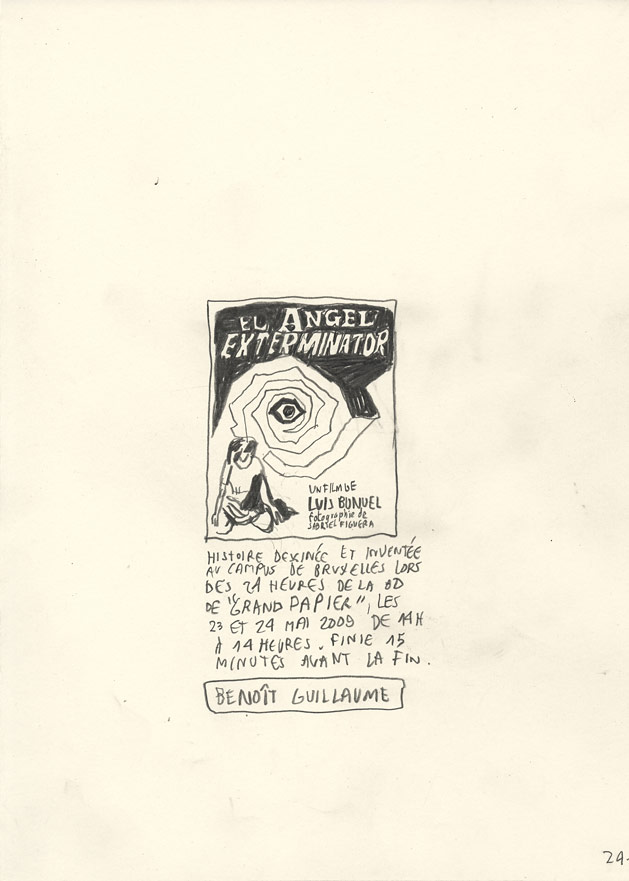 EL ANGEL
EXTERMINATOR
UN FILM DE
LUIS BUNUEL
fotographie de
GABRIEL FIGUERA
HISTOIRE DESSINÉE ET INVENTÉE
AU CAMPUS DE BRUXELLES LORS
DES 24 HEURES DE LA BD
DE "GRAND PAPIER", LES
23 ET 24 MAI 2009 DE 14H
À 14 HEURES. FINIE 15
MINUTES AVANT LA FIN.
BENOÎT GUILLAUME
24.